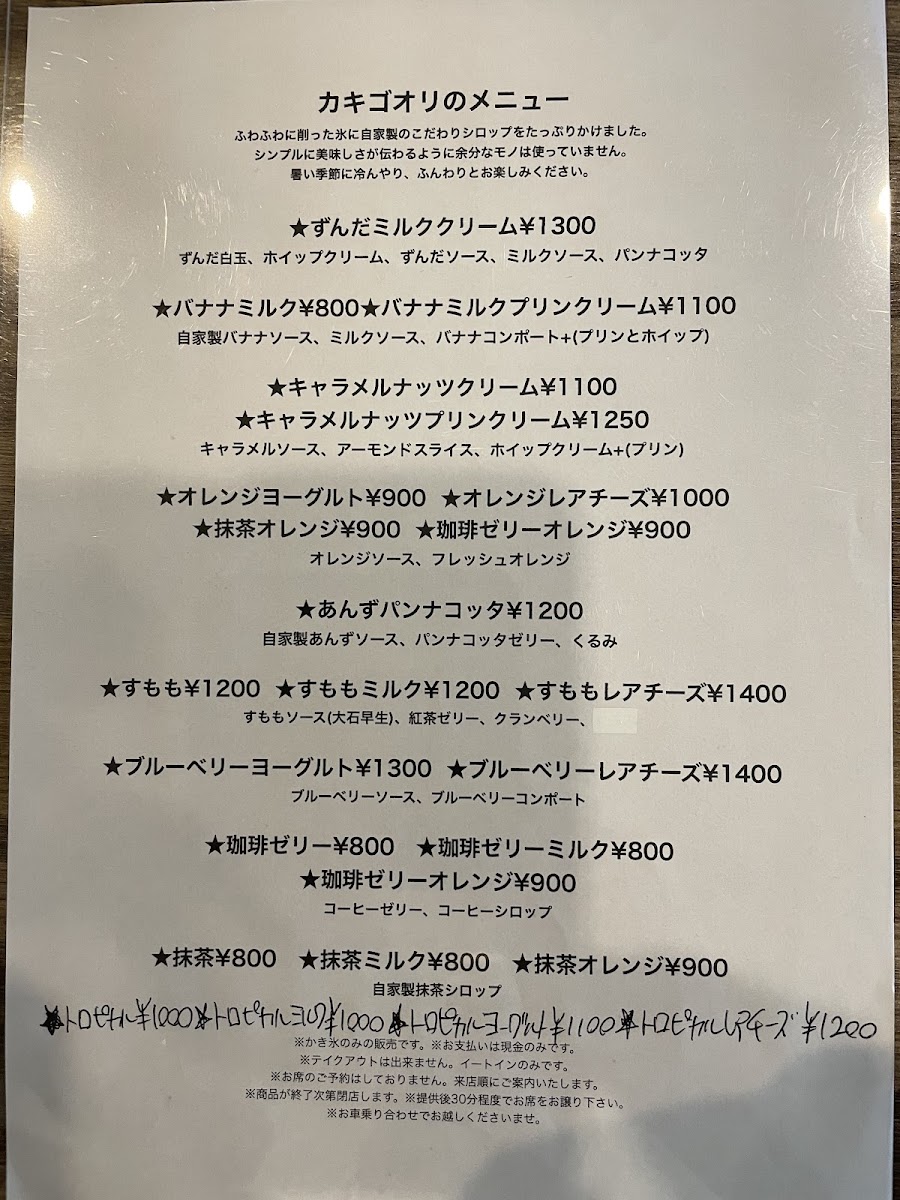 カキゴオリのメニュー
ふわふわに削った氷に自家製のこだわりシロップをたっぷりかけました。
シンプルに美味しさが伝わるように余分なモノは使っていません。
暑い季節に冷んやり、ふんわりとお楽しみください。
★ずんだミルククリーム¥1300
ずんだ白玉、ホイップクリーム、ずんだソース、ミルクソース、パンナコッタ
★バナナミルク¥800★バナナミルクプリンクリーム¥1100
自家製バナナソース、ミルクソース、バナナコンポート+(プリンとホイップ)
★キャラメルナッツクリーム¥1100
★キャラメルナッツプリンクリーム¥1250
キャラメルソース、アーモンドスライス、ホイップクリーム+(プリン)
★オレンジヨーグルト¥900 ★オレンジレアチーズ¥1000
★抹茶オレンジ¥900 ★珈琲ゼリーオレンジ¥900
オレンジソース、フレッシュオレンジ
★あんずパンナコッタ¥1200
自家製あんずソース、パンナコッタゼリー、くるみ
★すもも¥1200 ★すももミルク¥1200 ★すももレアチーズ¥1400
すももソース(大石早生)、紅茶ゼリー、クランベリー、
★ブルーベリーヨーグルト¥1300 ★ブルーベリーレアチーズ¥1400
ブルーベリーソース、ブルーベリーコンポート
★珈琲ゼリー¥800 ★珈琲ゼリーミルク¥800
★珈琲ゼリーオレンジ¥900
コーヒーゼリー、コーヒーシロップ
★抹茶¥800 ★抹茶ミルク¥800 ★抹茶オレンジ¥900
自家製抹茶シロップ
★トロピカル¥1000★トロピカルミルク¥1000★トロピカルヨーグルト¥1100★トロピカルレアチーズ¥1200
※かき氷のみの販売です。※お支払いは現金のみです。
※テイクアウトは出来ません。イートインのみです。
※お席のご予約はしておりません。来店順にご案内いたします。
※商品が終了次第閉店します。※提供後30分程度でお席をお譲り下さい。
※お車乗り合わせでお越しくださいませ。